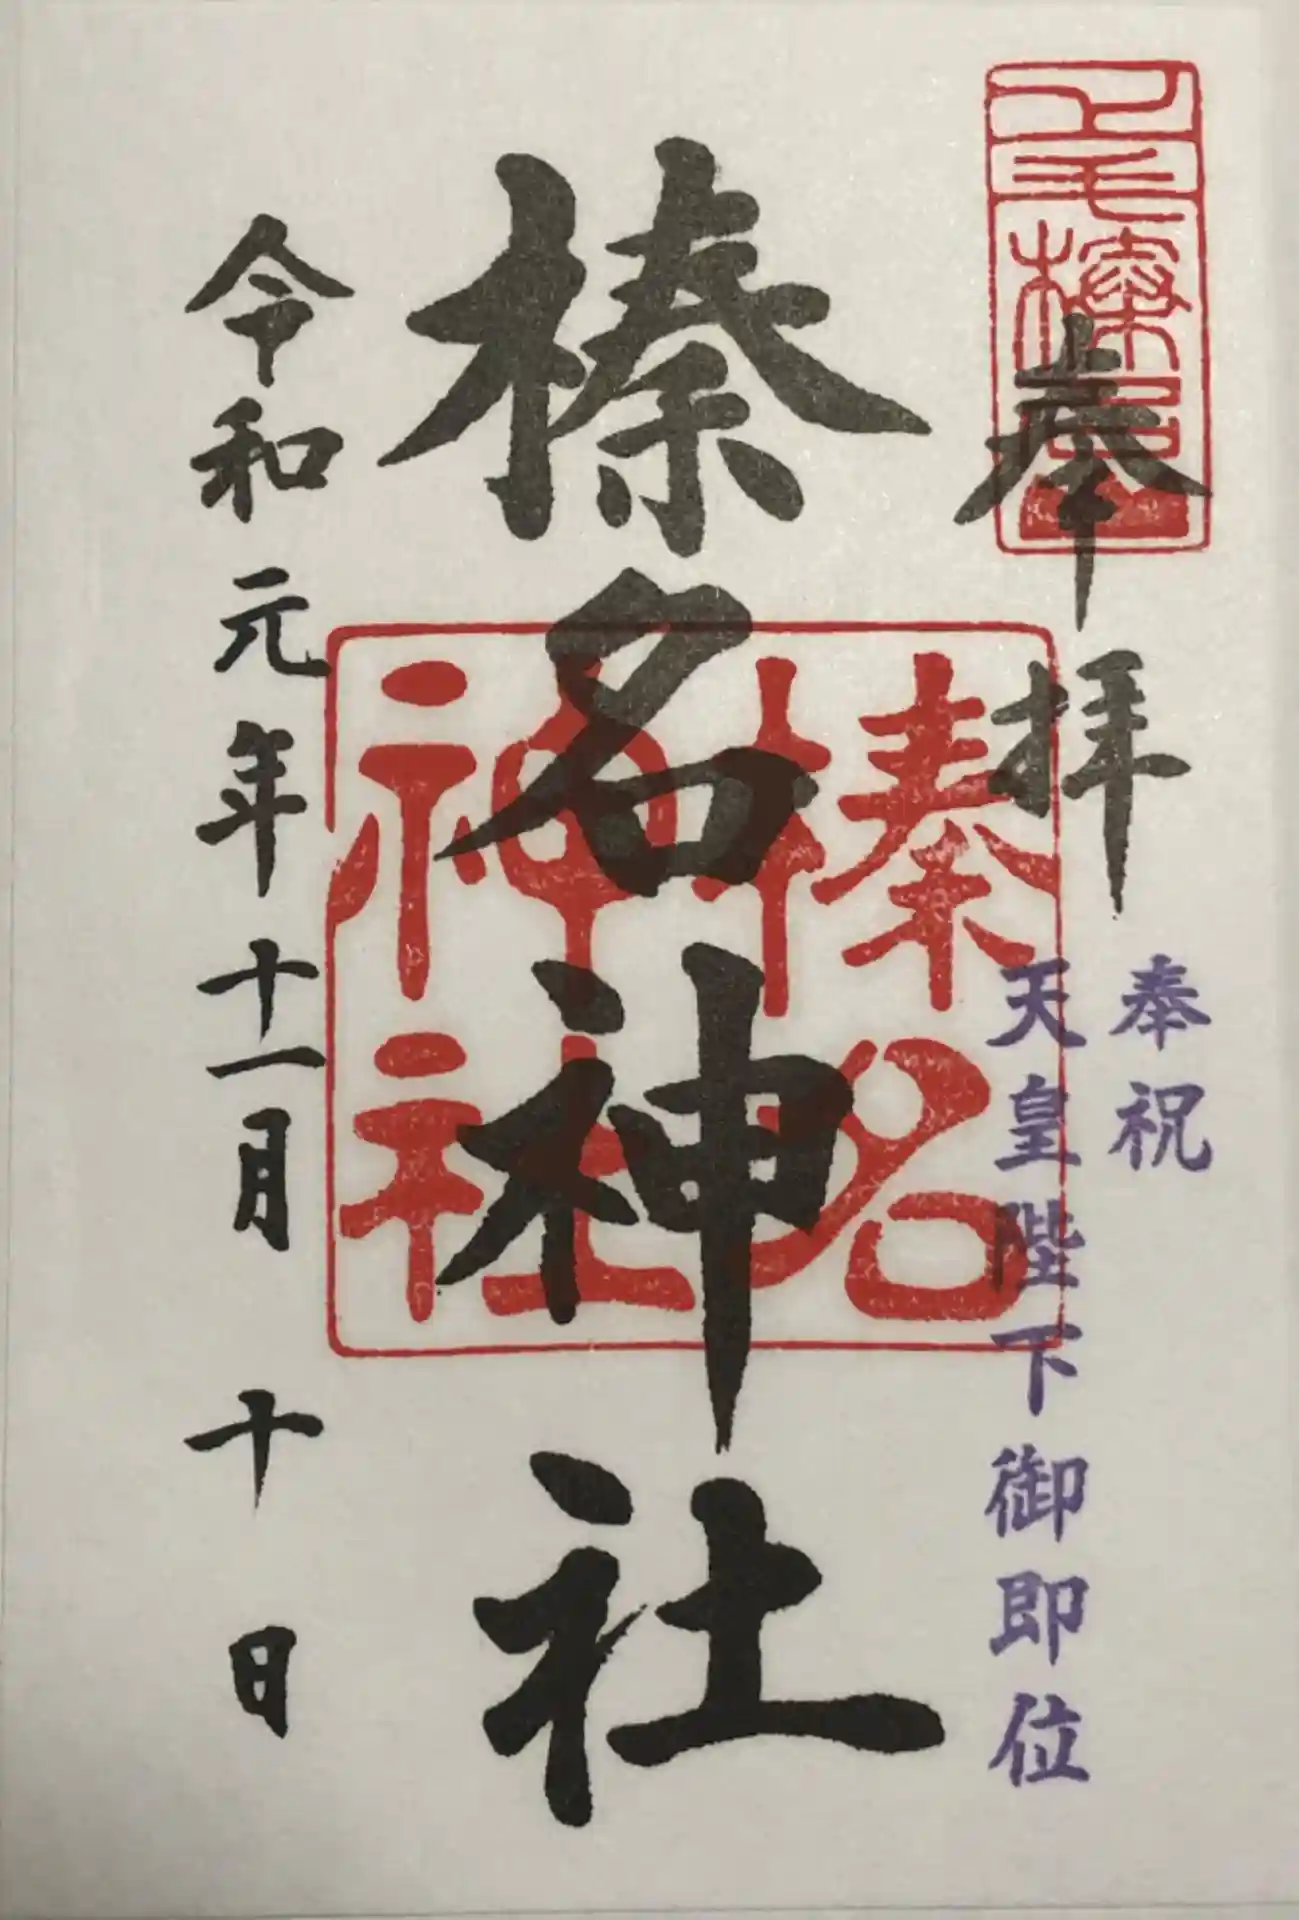 上毛榛名山
奉拝
奉祝
天皇陛下御即位
榛名神社
榛名
神社
令和元年十一月十日